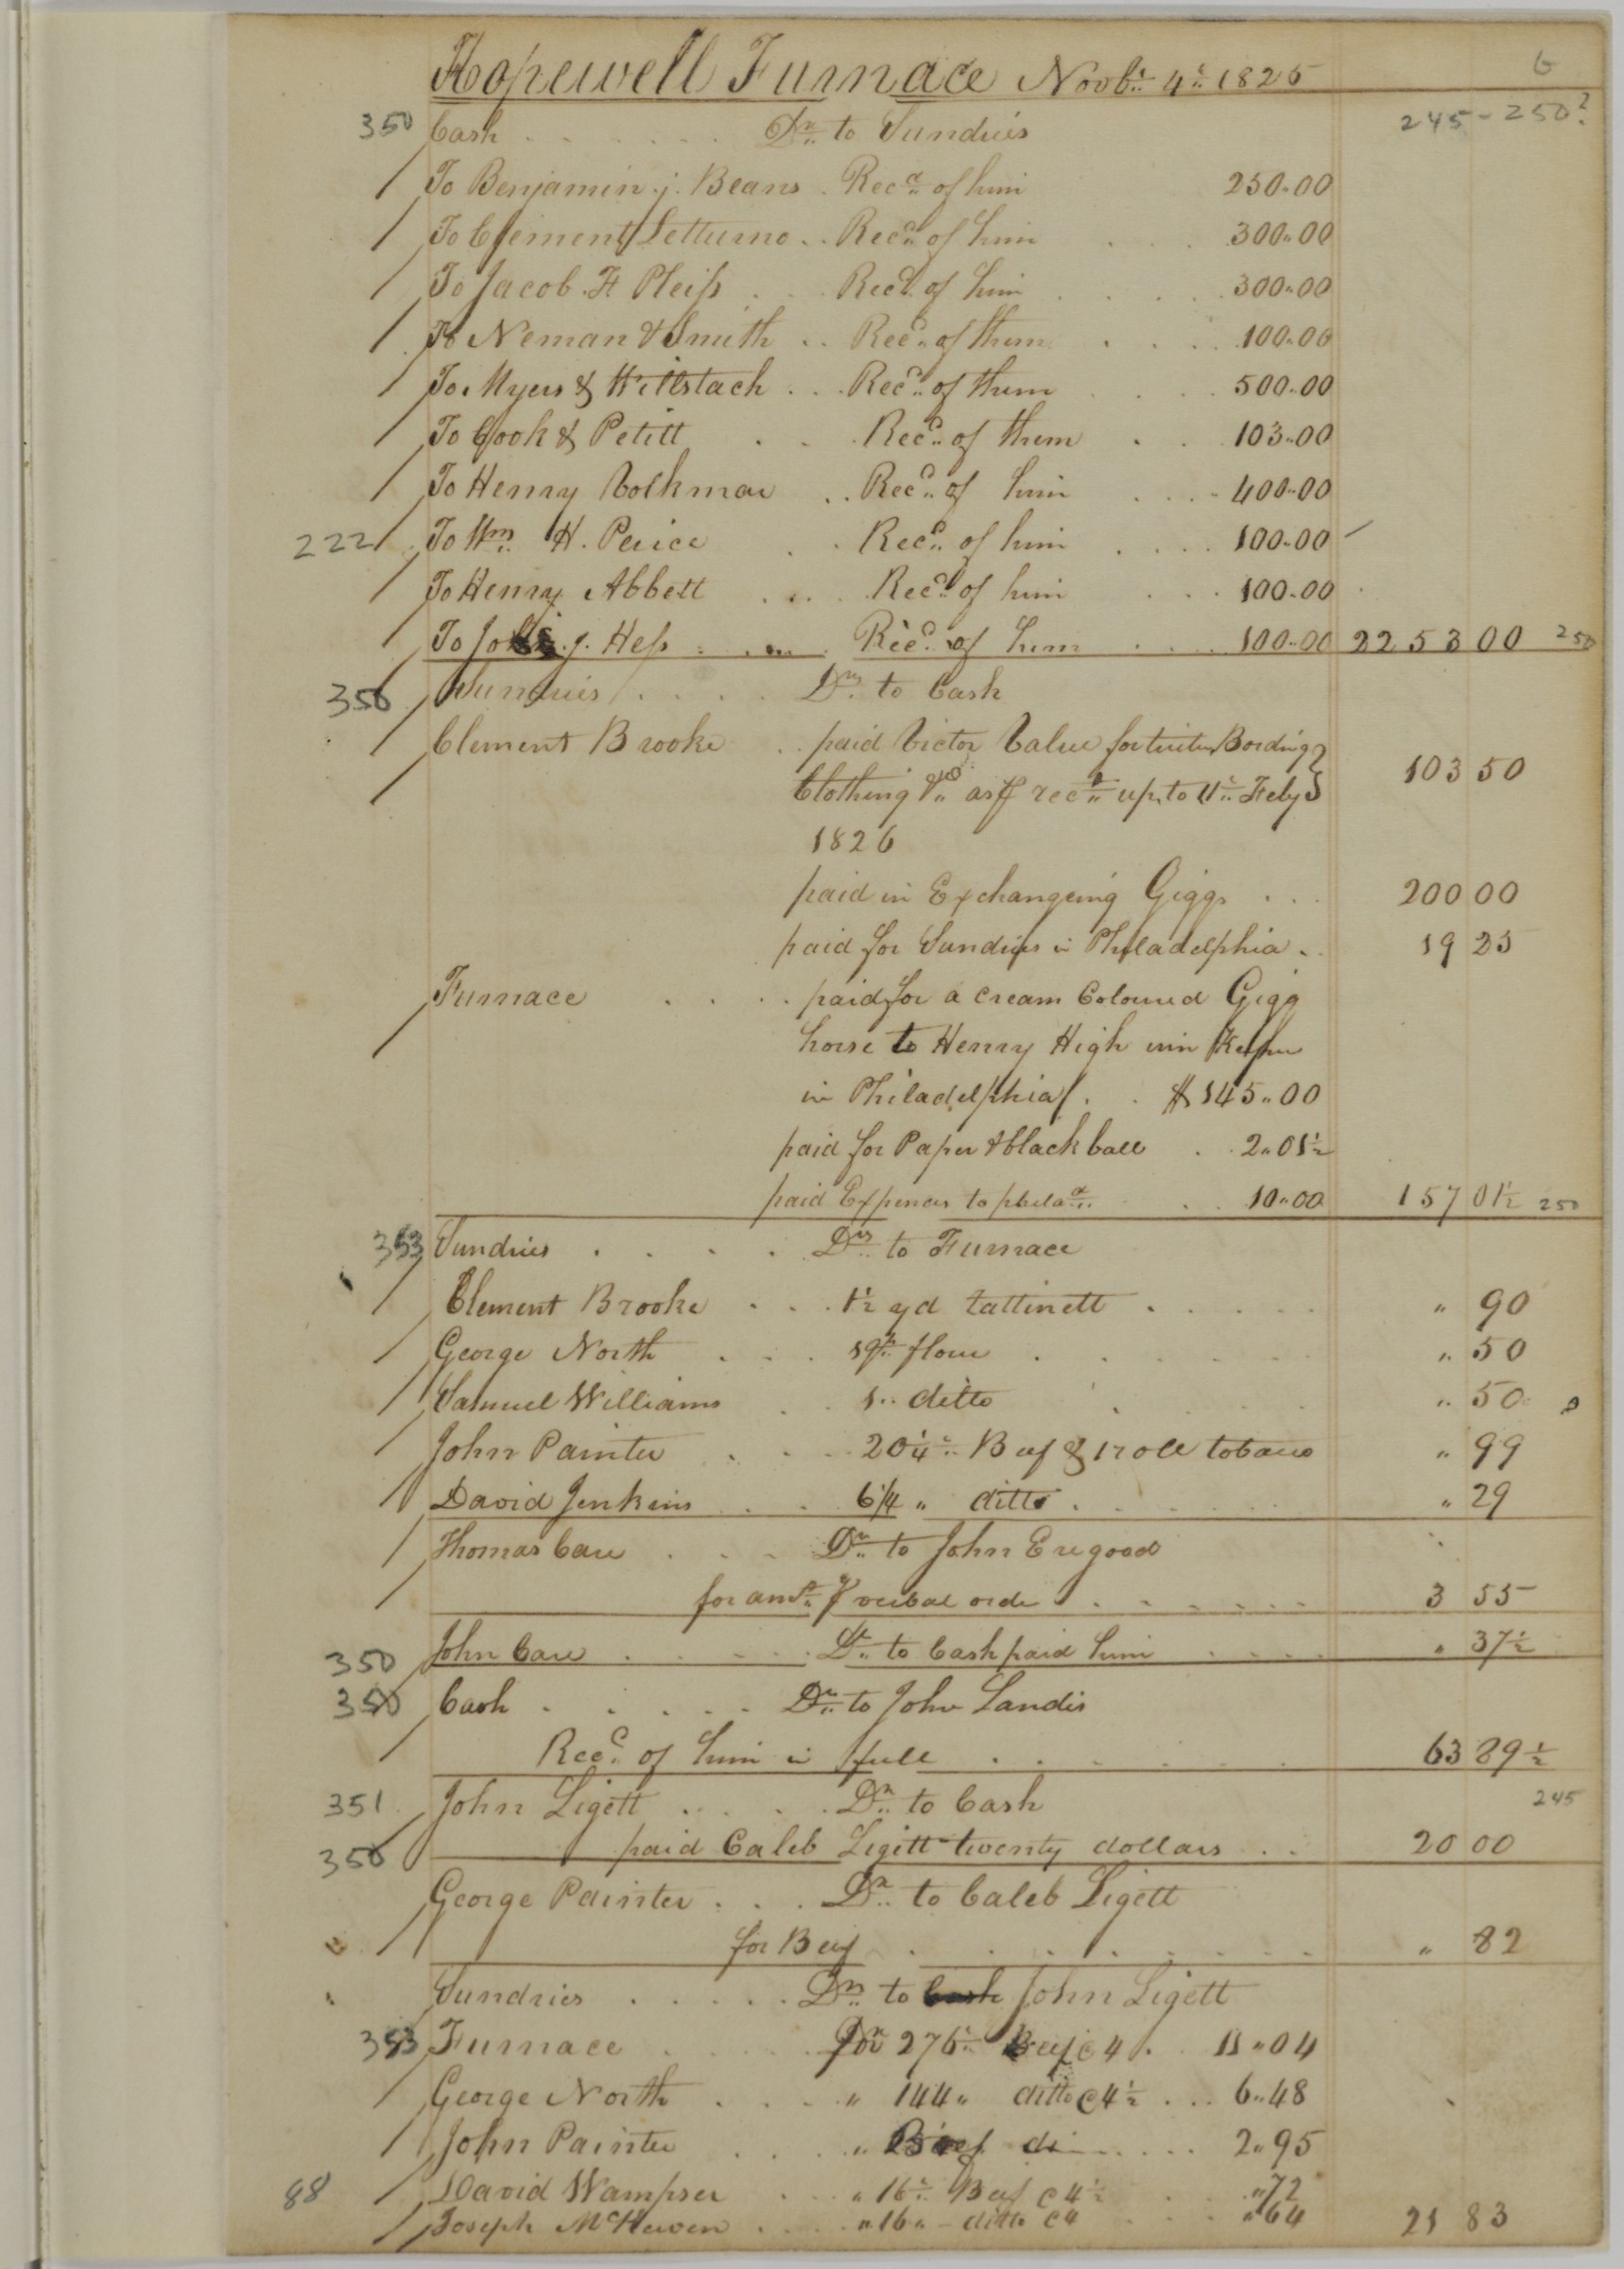 6
Hopewell Furnace Novbr 4th 1825
245-250?
350 Cash . . . . . . Dr to Sundries
To Benjamin j. Beans . Recd of him 250.00
To Clement Letturno . . Recd of him . . . 300.00
To Jacob. H Pleiss . . Recd of him . . . . 300.00
To Neman & Smith . . Recd of them . . . . 100.00
To Myers & Willstach . . . Recd of them . . . . 500.00
To Cook & Petitt . . Recd of them . . . 103.00
To Henry Volkmar . . Recd of him . . . . 400.00
222 To Wm H. Peirce . . Recd of him . . . . 100.00
To Henry Abbett . . . . Recd of him . . . 100.00
To John j. Hess . . . . Recd of him . . . 100.00 2253 00 250
350 Sundries . . . . Drs to Cash
Clement Brooke . . paid Victor Value for tuition Bording
Clothing &c as pr recd up to 11th Feby 103 50
1826
paid in Exchangeing Giggs . . . 200 00
paid for Sundries in Philadelphia . . 19 25
Furnace . . . . paid for a cream Coloured Gigg
horse to Henry High inn Keeper
in Philadelphia . . $ 145.00
paid for Paper & black ball . . 2.01½
paid Expences to philada . . 10.00 157 01½ 250
353 Sundries . . . . Drs to Furnace
Clement Brooke . . . 1½ yd Sattinett . . . . . " 90
George North . . . 1 qr flour . . . . . " 50
Samuel Williams . . 1 " ditto . . . . " 50
John Painter . . . 20¼ lb Beef & 1 role tobacco " 99
David Jenkins . . 6¼ " ditto . . . . . . " 29
Thomas Care . . . Dr to John Eregood
for amt pr verbal order . . . . . . 3 55
350 John Care . . . . . Dr to Cash paid him . . . . " 37½
350 Cash . . . . . Dr to John Landis
Recd of him in full . . . . . . 63 89½
245
351 John Ligett . . . . . Dr to Cash
350 paid Caleb Ligett twenty dollars . . 20 00
George Painter . . . Dr to Caleb Ligett
for Beef . . . . . . . . " 82
Sundries . . . . . Drs to Cash John Ligett
353 Furnace . . . . . for 276 lb Beef @ 4 . 11 " 04
George North . . . . " 144 " ditto @ 4½ . . . 6 " 48
John Painter . . . . " Beef di . . . . 2 " 95
88 David Wampser . . . " 16 lb Beef @ 4½ . . . " 72
Joseph McKewen . . . . " 16 " ditto @ 4 . . . . " 64 21 83